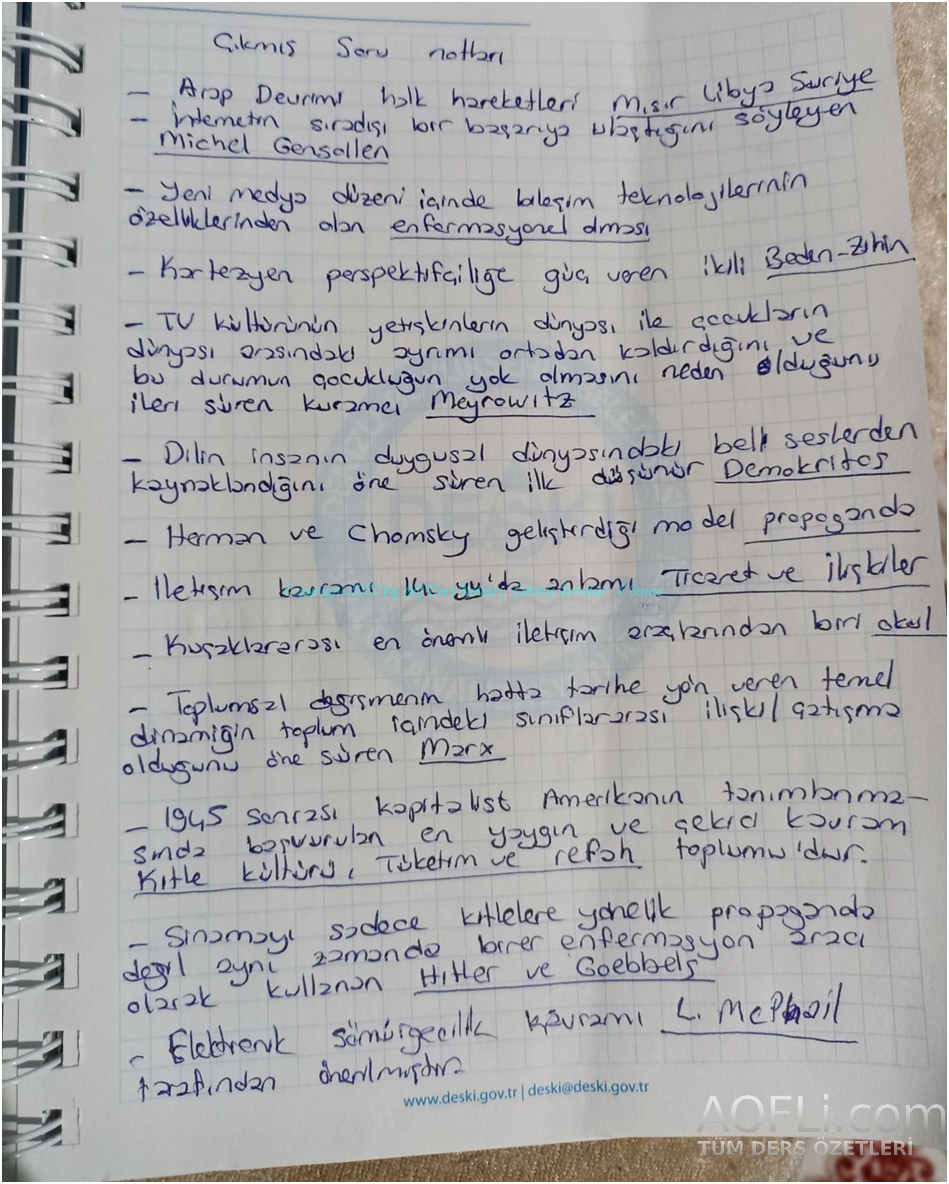 Çıkmış Soru notları
- Arap Devrimi halk hareketleri Mısır Libya Suriye
- İnternetin sıradışı bir başarıya ulaştığını söyleyen
Michel Gensollen
- Yeni medya düzeni içinde bilişim teknolojilerinin
özelliklerinden olan enfermasyonel olması
- Kartezyen perspektifçiliğe güç veren ikili Beden-Zihin
- TV kültürünün yetişkinlerin dünyası ile çocukların
dünyası arasındaki ayrımı ortadan kaldırdığını ve
bu durumun çocukluğun yok olmasını neden olduğunu
ileri süren kuramcı Meyrowitz
- Dilin insanın duygusal dünyasındaki belli seslerden
kaynaklandığını öne süren ilk düşünür Demokritos
- Herman ve Chomsky geliştirdiği model propaganda
- İletişim kavramı 14. yy'da anlamı Ticaret ve ilişkiler
- Kuşaklararası en önemli iletişim araçlarından biri okul
- Toplumsal değişmenin hatta tarihe yön veren temel
dinamiğin toplum içindeki sınıflararası ilişki/çatışma
olduğunu öne süren Marx
- 1945 sonrası kapitalist Amerikanın tanımlanma-
sında başvurulan en yaygın ve çekici kavram
Kitle kültürü, Tüketim ve refah toplumu'dur.
- Sinamayı sadece kitlelere yönelik propaganda
değil aynı zamanda birer enfermasyon aracı
olarak kullanan Hitler ve Goebbels
- Elektronik sömürgecilik kavramı L. McPhail
tarafından önerilmiştir.
www.deski.gov.tr | deski@deski.gov.tr
AOFLi.com
TÜM DERS ÖZETLERİ